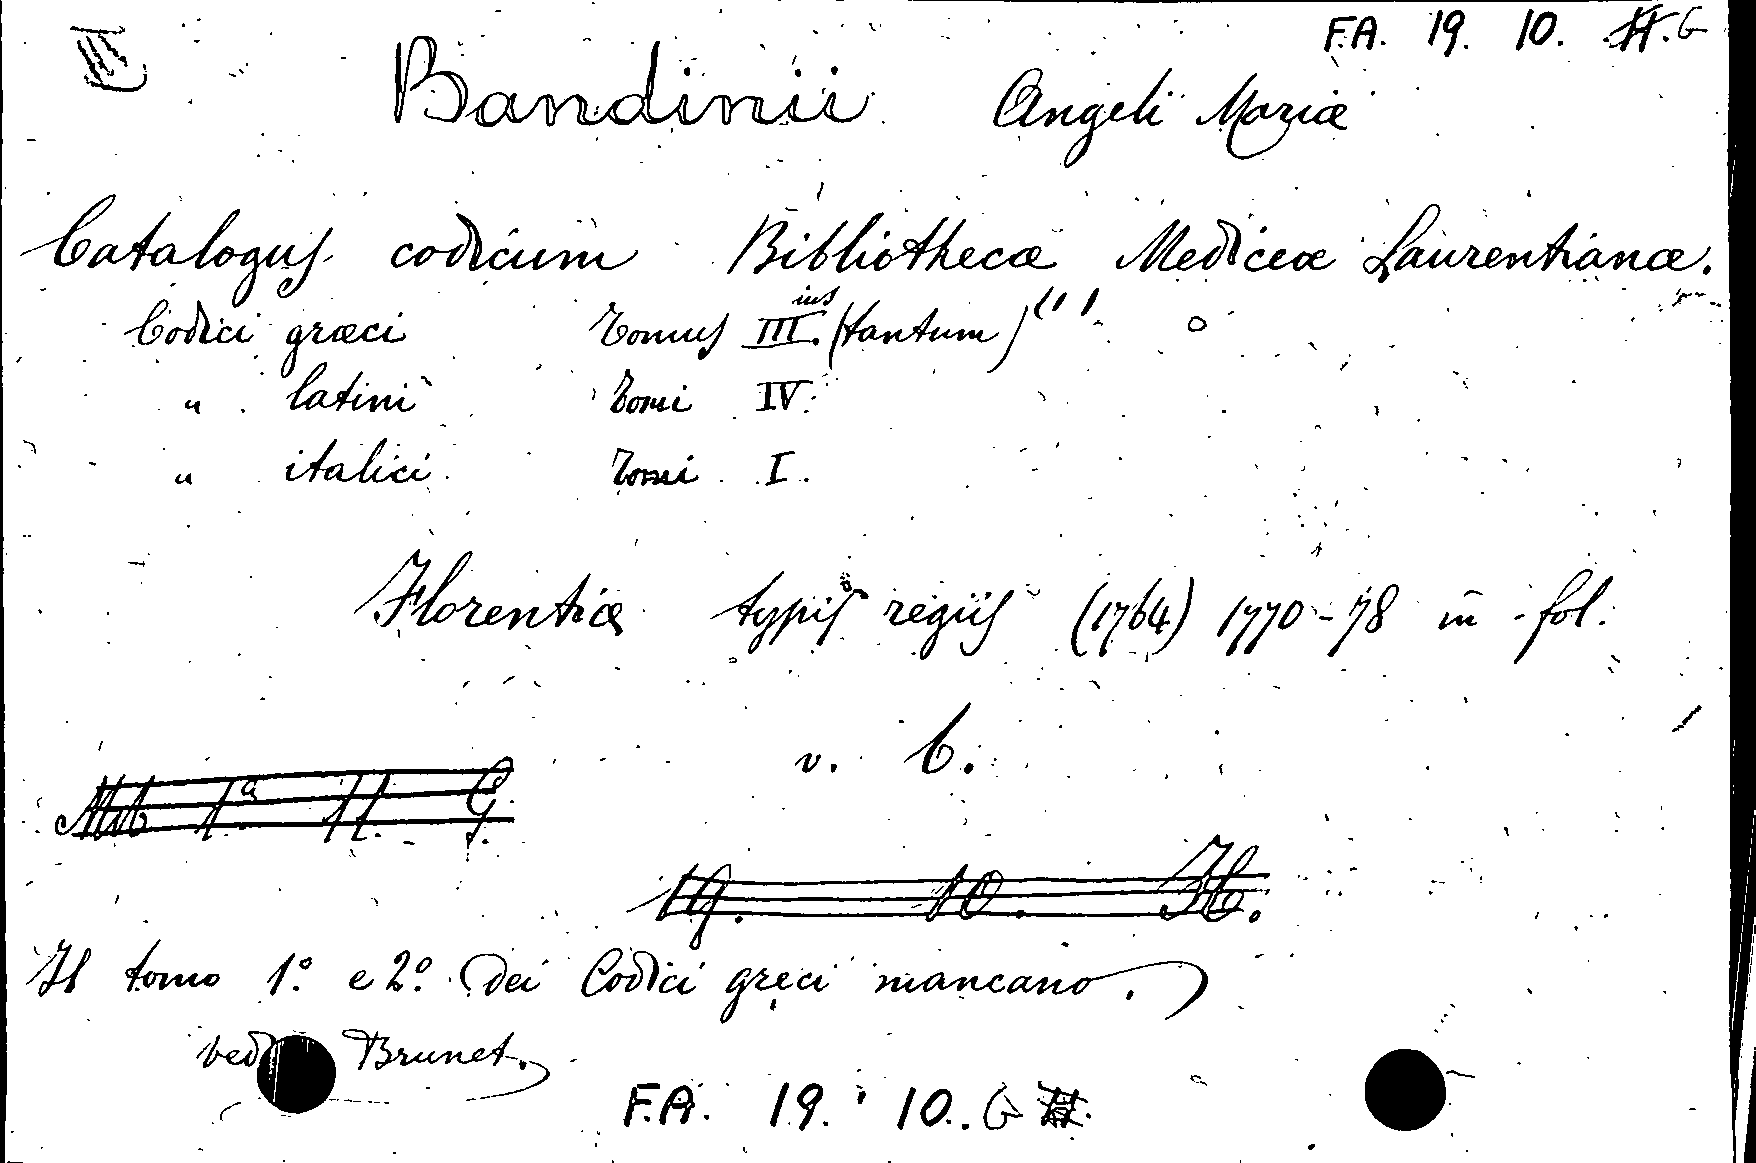 F.A. 19. 10. H. G
Bandinii Angeli Mariæ
Catalogus codicum Bibliothecæ Mediceæ Laurentianæ.
Codici græci Tomus III.ius (tantum) (1)
" latini Tomi IV.
" italici Tomi I.
Florentiæ typis regiis (1764) 1770-78 in fol.
v. 6.
1ª 11. G.
19. 10. H.
Il tomo 1º. e 2º. dei Codici greci mancano.)
Brunet.
F.A. 19. 10. G H.